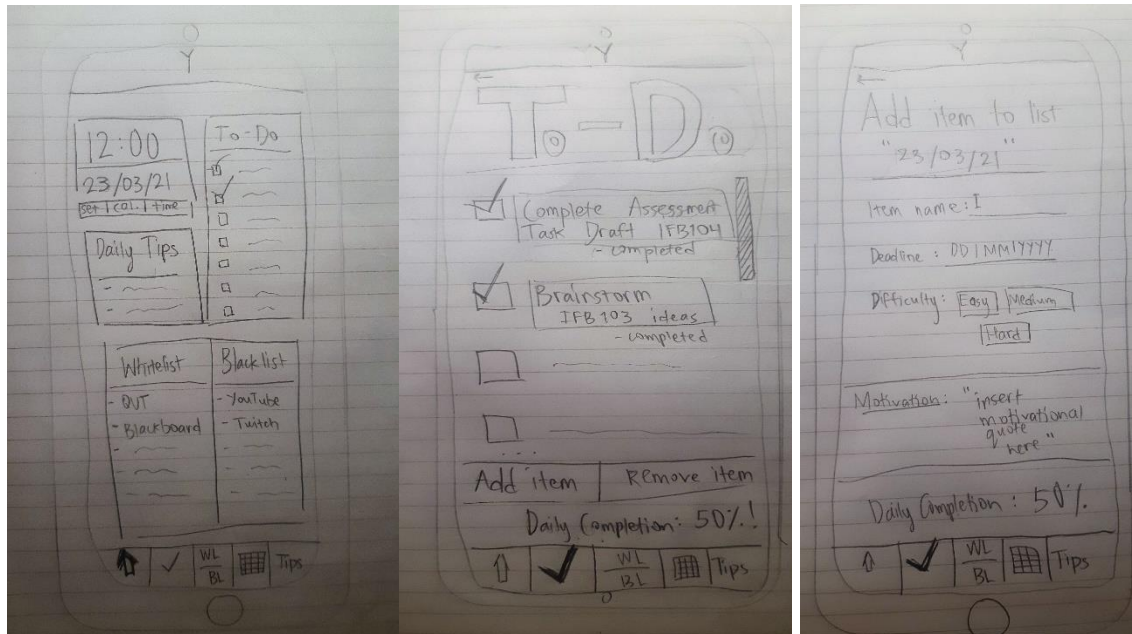 Y
12:00
23/03/21
set | cal. | time
Daily Tips
To-Do
Whitelist
- QUT
- Blackboard
Blacklist
- YouTube
- Twitch
WL
BL
Tips
Y
←
To-Do
Complete Assessment
Task Draft IFB104
- completed
Brainstorm
IFB103 ideas
- completed
...
Add item | Remove item
Daily Completion: 50%!
WL
BL
Tips
Y
←
Add item to list
"23/03/21"
Item name: I
Deadline: DD/MM/YYYY
Difficulty: Easy Medium
Hard
Motivation: "insert
motivational
quote
here"
Daily Completion: 50%
WL
BL
Tips